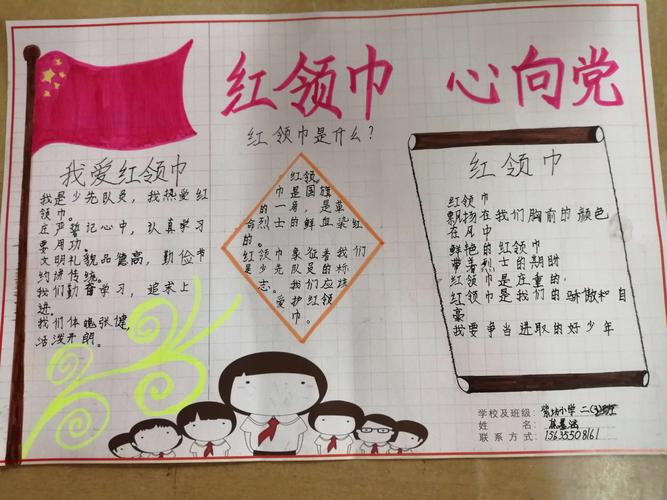 红领巾 心向党
红领巾是什么？
我爱红领巾
我是少先队员，我热爱红
领巾。
庄严誓记心中，认真学习
要用功。
文明礼貌品德高，勤俭节
约讲传统。
我们勤奋学习，追求上
进。
我们体魄张健，
活泼开朗。
红领
巾是国旗
的一角，是革
命烈士的鲜血染红
的。
红领巾象征着我们
是少先队员的标
志。我们应该
爱护红领
巾。
红领巾
红领巾
飘扬在我们胸前的颜色
在风中
鲜艳的红领巾
带着烈士的期盼
红领巾是庄重的
红领巾是我们的骄傲和自
豪
我要争当进取的好少年
学校及班级：
坊小学 二(3)班
姓名：
联系方式：15635508161